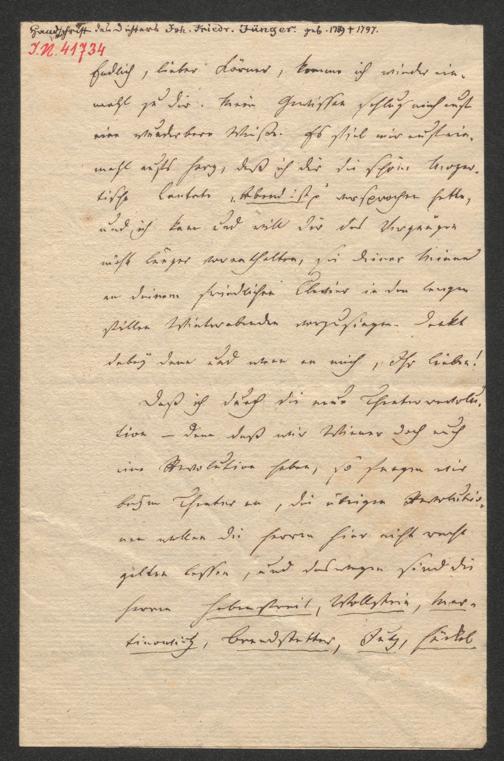 Handschrift des Dichters Joh. Friedr. Jünger. geb. 1759 † 1797.
I.N. 41734
Endlich, lieber Körner, komme ich wieder ein-
mahl zu dir. Mein Gewissen schlug mich auf
eine wunderbare Weise. Es fiel mir auf ein-
mahl aufs Herz, daß ich dir die schöne Mozar-
tische Cantate „Abend ists" versprochen hatte,
und ich kann und will dir das Vergnügen
nicht länger vorenthalten, sie deiner Minna
an deinem friedlichen Clavier in den langen
stillen Winterabenden vorzusingen. Denkt
dabey dann und wann an mich, Ihr Lieben!
Daß ich durch die neue Theaterrevolu-
tion – denn daß wir Wiener doch auch
eine Revolution haben, so fangen wir
beym Theater an, die übrigen Revolutio-
nen wollen die Herren hier nicht recht
gelten lassen, und deswegen sind die
Herren Hebenstreit, Wollstein, Mar-
tinowitz, Brandstetter, Jutz, Häckel